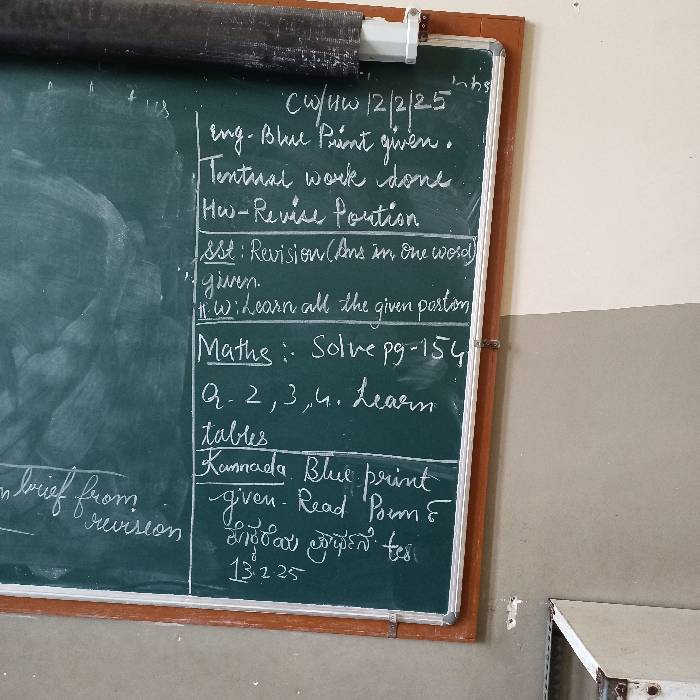 CW/HW 12/2/25
Eng- Blue Print given.
Textual work done
HW- Revise Portion
SSt: Revision (Ans in one word)
given.
H.W: Learn all the given portion
Maths :- Solve pg-154
Q. 2, 3, 4. Learn
tables
Kannada Blue print
given- Read Poem &
ಪ್ರಾರ್ಥನೆ tes
13.2.25
brief from
revision